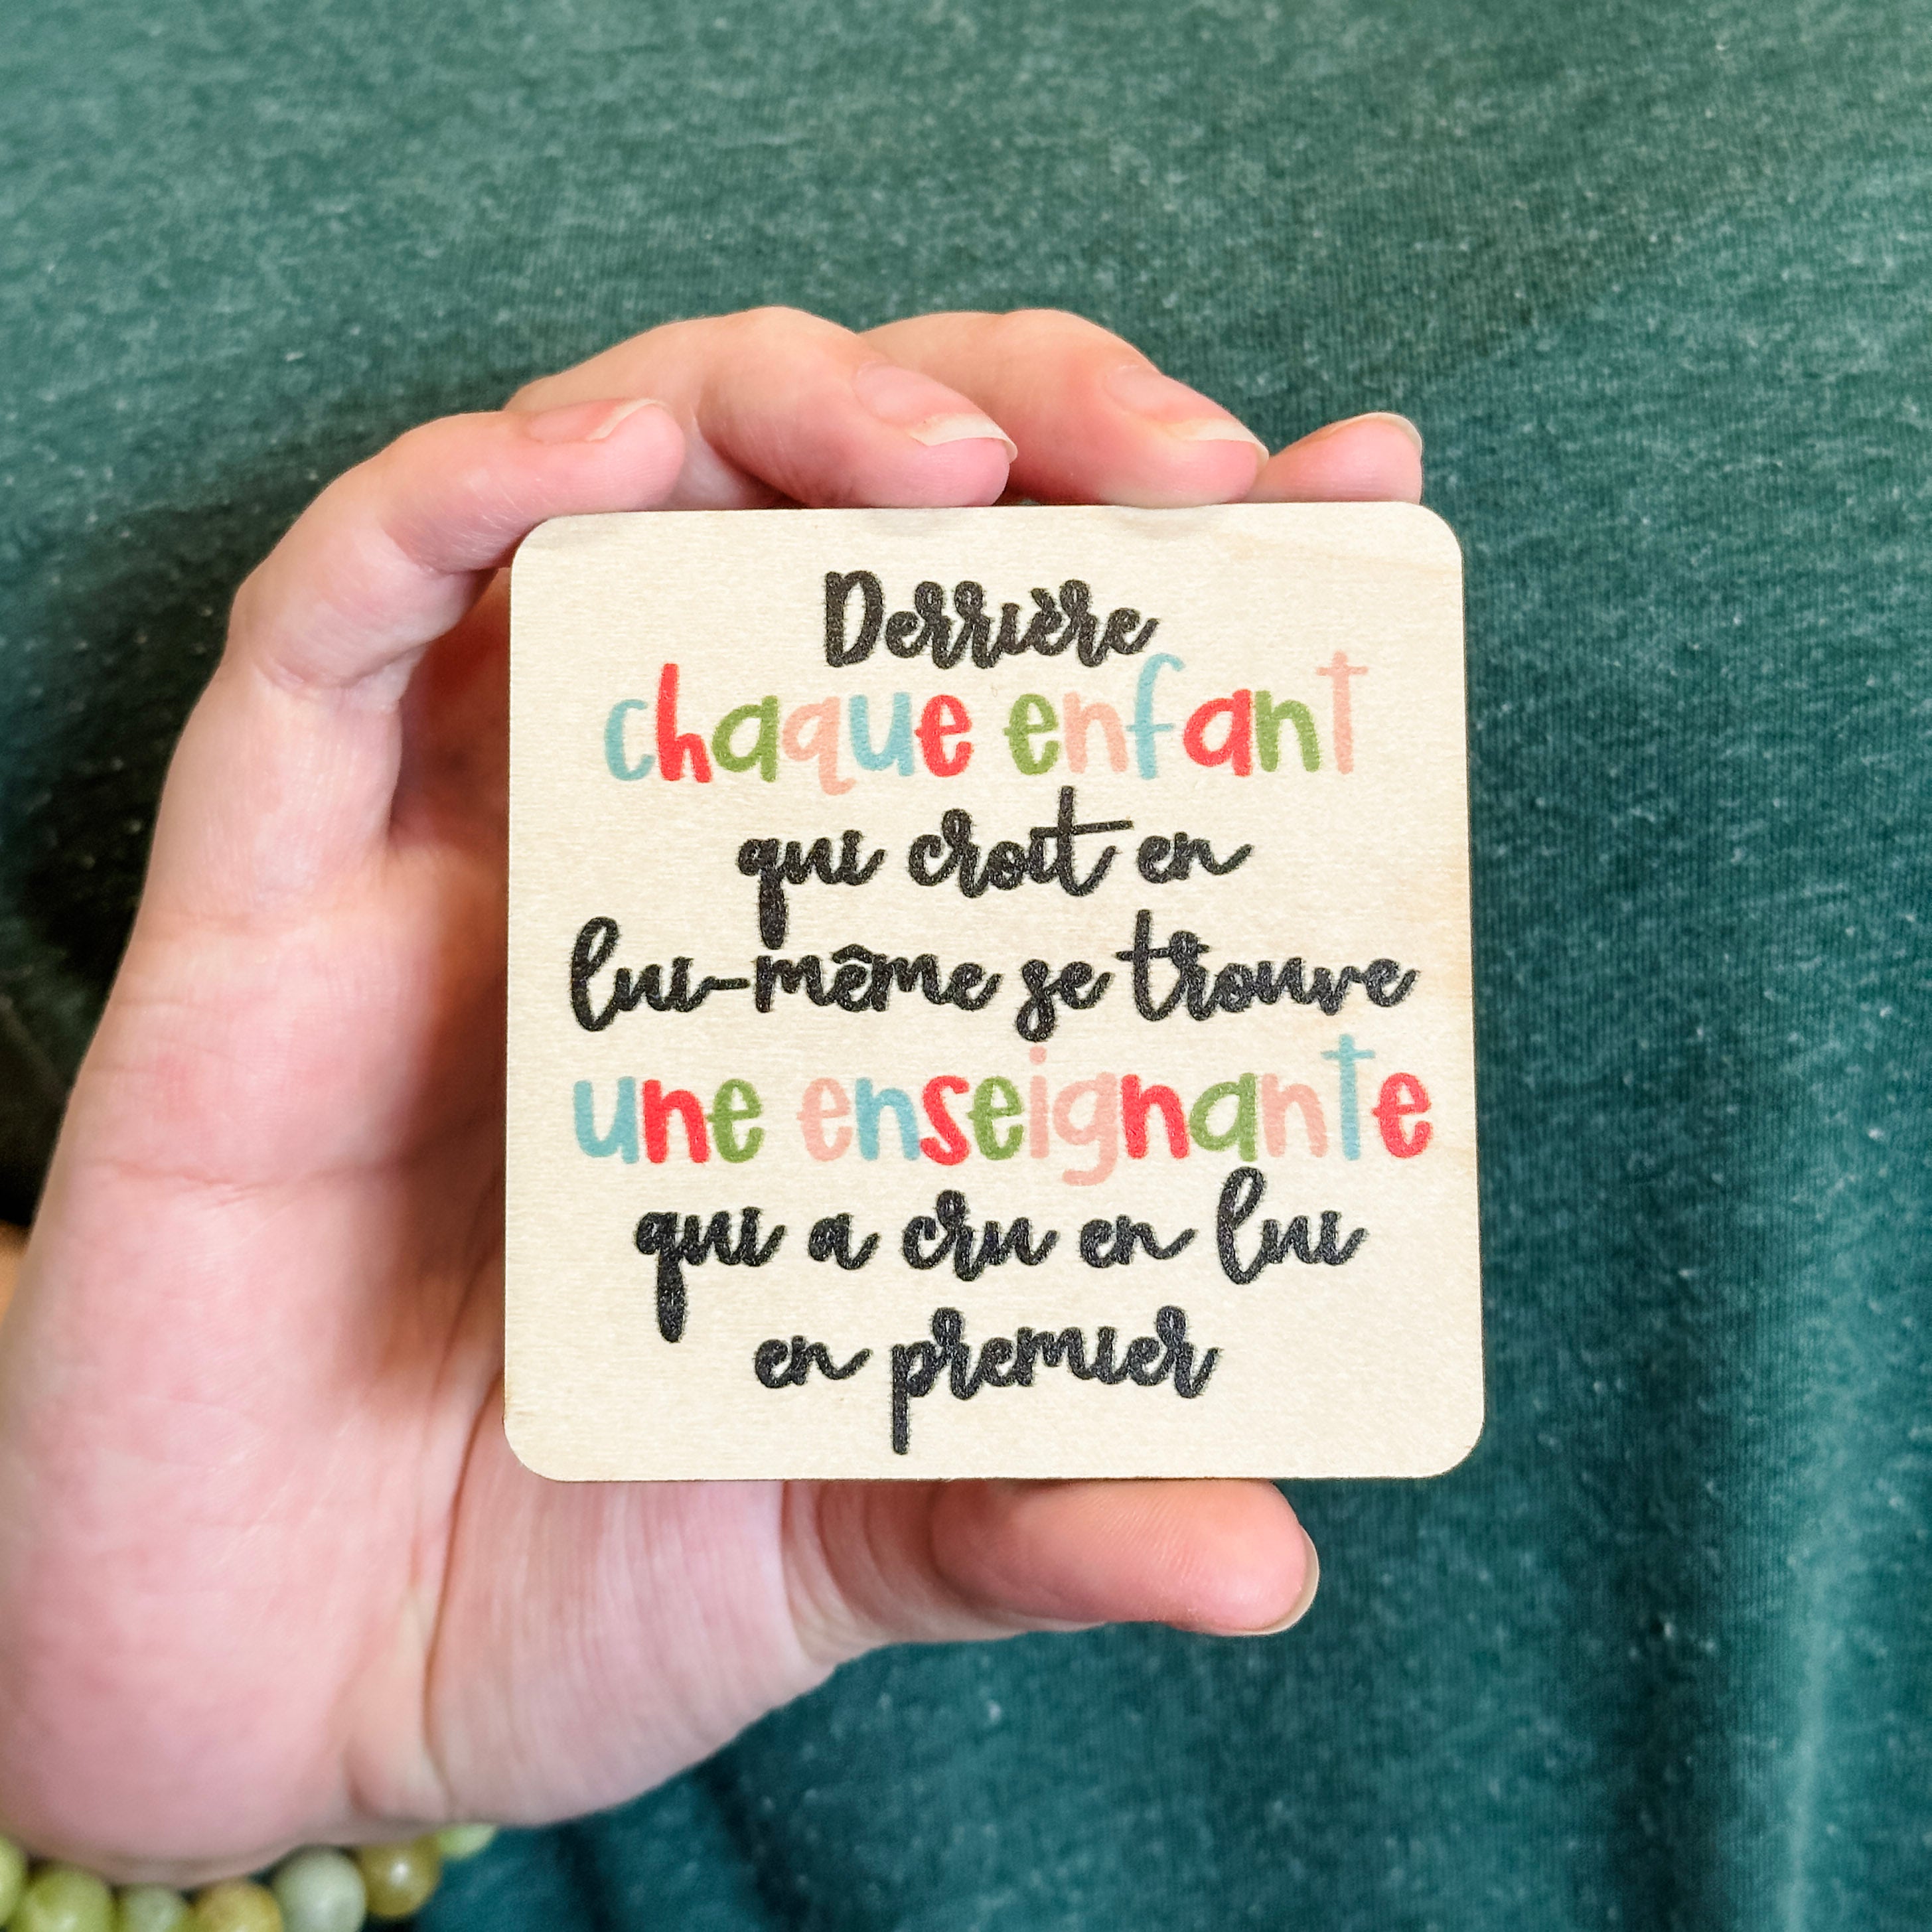 Derrière
chaque enfant
qui croit en
lui-même se trouve
une enseignante
qui a cru en lui
en premier